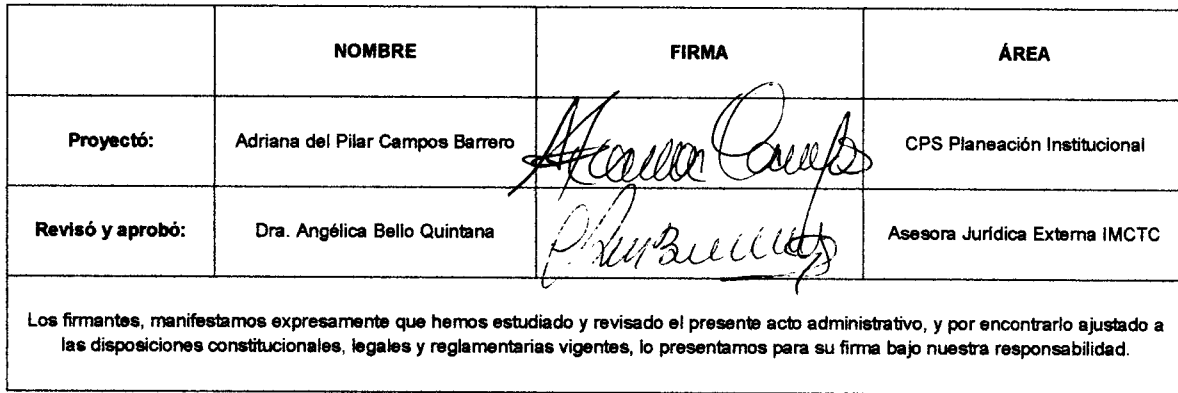 NOMBRE FIRMA ÁREA
Proyectó: Adriana del Pilar Campos Barrero CPS Planeación Institucional
Revisó y aprobó: Dra. Angélica Bello Quintana Asesora Jurídica Externa IMCTC
Los firmantes, manifestamos expresamente que hemos estudiado y revisado el presente acto administrativo, y por encontrarlo ajustado a
las disposiciones constitucionales, legales y reglamentarias vigentes, lo presentamos para su firma bajo nuestra responsabilidad.